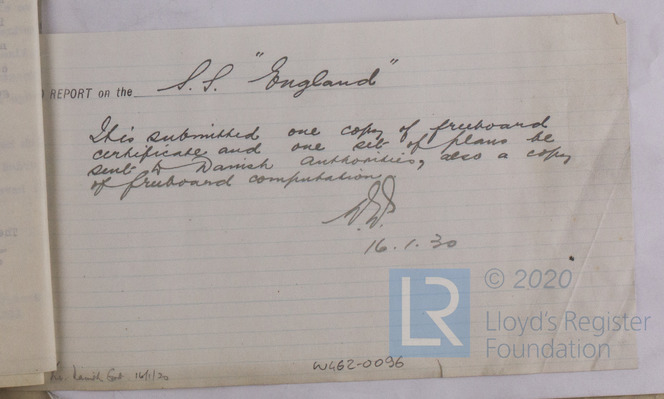 REPORT on the S.S. "England"
It is submitted one copy of freeboard
certificate and one set of plans be
sent to Danish Authorities, also a copy
of freeboard computation.
16.1.30
LR © 2020
Lloyd's Register
Foundation
W462-0096
16/1/30